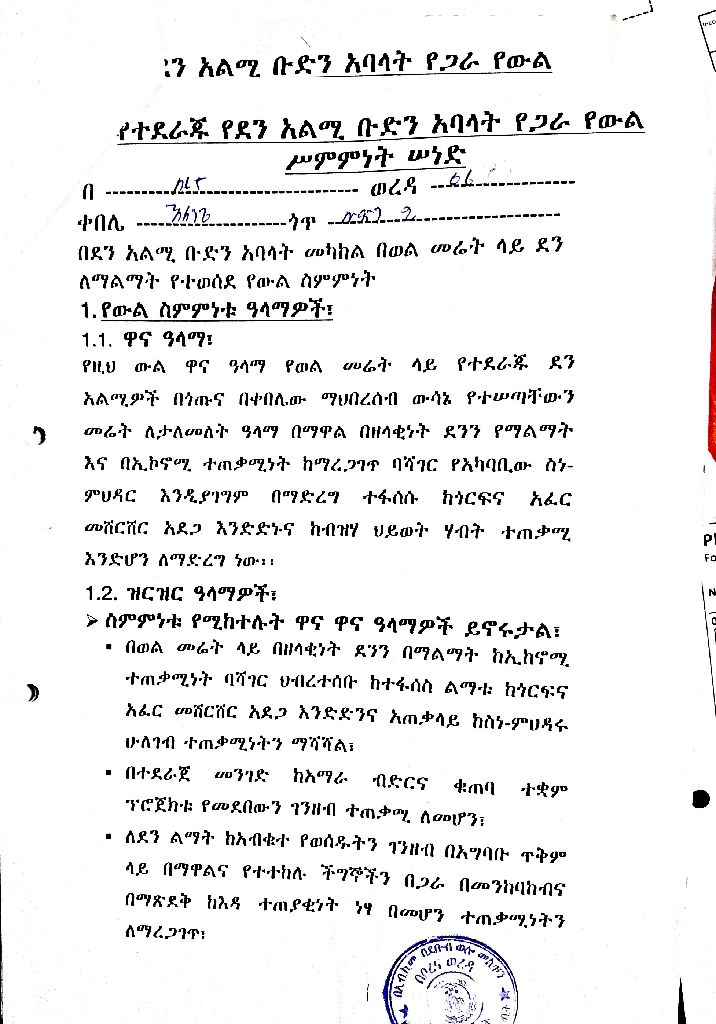 ን አልሚ ቡድን አባላት የጋራ የውል
የተደራጁ የደን አልሚ ቡድን አባላት የጋራ የውል
ሥምምነት ሠነድ
በ ---------- ወረዳ ----------
ቀበሌ ---------- ጎጥ ----------
በደን አልሚ ቡድን አባላት መካከል በወል መሬት ላይ ደን
ለማልማት የተወሰደ የውል ስምምነት
1. የውል ስምምነቱ ዓላማዎች፣
1.1. ዋና ዓላማ፣
የዚህ ውል ዋና ዓላማ የወል መሬት ላይ የተደራጁ ደን
አልሚዎች በጎጡና በቀበሌው ማህበረሰብ ውሳኔ የተሠጣቸውን
መሬት ለታለመለት ዓላማ በማዋል በዘላቂነት ደንን የማልማት
እና በኢኮኖሚ ተጠቃሚነት ከማረጋገጥ ባሻገር የአካባቢው ስነ-
ምህዳር እንዲያገግም በማድረግ ተፋሰሱ ከጎርፍና አፈር
መሸርሸር አደጋ እንድድኑና ከብዝሃ ህይወት ሃብት ተጠቃሚ
እንድሆን ለማድረግ ነው፡፡
1.2. ዝርዝር ዓላማዎች፣
➢ ስምምነቱ የሚከተሉት ዋና ዋና ዓላማዎች ይኖሩታል፣
▪ በወል መሬት ላይ በዘላቂነት ደንን በማልማት ከኢኮኖሚ
ተጠቃሚነት ባሻገር ህብረተሰቡ ከተፋሰስ ልማቱ ከጎርፍና
አፈር መሸርሸር አደጋ እንድድንና አጠቃላይ ከስነ-ምህዳሩ
ሁለገብ ተጠቃሚነትን ማሻሻል፣
▪ በተደራጀ መንገድ ከአማራ ብድርና ቁጠባ ተቋም
ፕሮጀክቱ የመደበውን ገንዘብ ተጠቃሚ ለመሆን፣
▪ ለደን ልማት ከአብቁተ የወሰዱትን ገንዘብ በአግባቡ ጥቅም
ላይ በማዋልና የተተከሉ ችግኞችን በጋራ በመንከባከብና
በማጽደቅ ከእዳ ተጠያቂነት ነፃ በመሆን ተጠቃሚነትን
ለማረጋገጥ፣